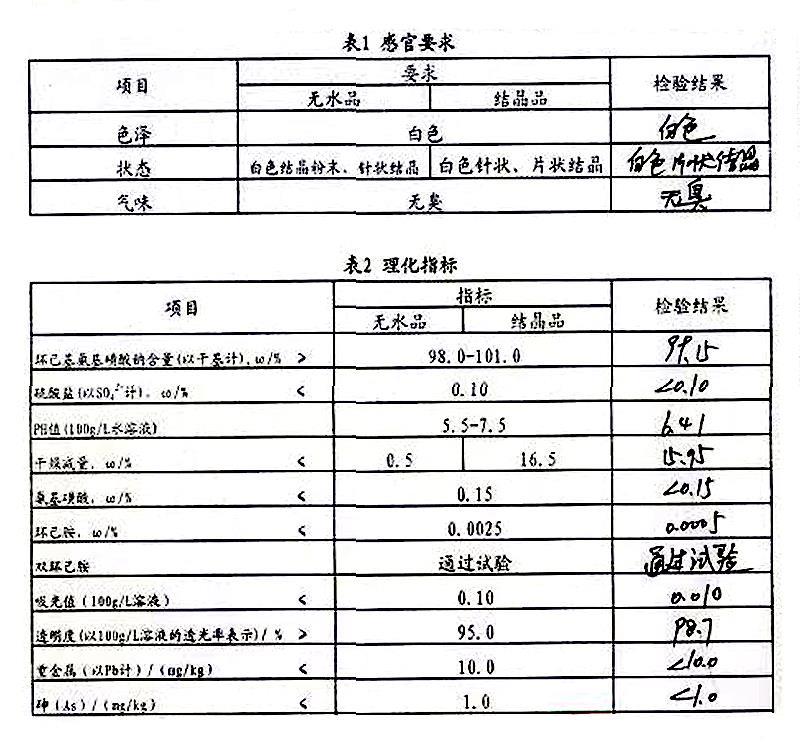 表1 感官要求
项目 要求 检验结果
无水品 结晶品
色泽 白色 白色
状态 白色结晶粉末、针状结晶 白色针状、片状结晶 白色片状结晶
气味 无臭 无臭
表2 理化指标
项目 指标 检验结果
无水品 结晶品
环己基氨基磺酸钠含量(以干基计),ω/% ≥ 98.0-101.0 99.15
硫酸盐(以SO₄²⁻计),ω/% ≤ 0.10 <0.10
PH值(100g/L水溶液) 5.5-7.5 6.41
干燥减量,ω/% ≤ 0.5 16.5 15.95
氨基磺酸,ω/% ≤ 0.15 <0.15
环己胺,ω/% ≤ 0.0025 0.0005
双环己胺 通过试验 通过试验
吸光值(100g/L溶液) ≤ 0.10 0.010
透明度(以100g/L溶液的透光率表示)/% ≥ 95.0 98.7
重金属(以Pb计)/(mg/kg) ≤ 10.0 <10.0
砷(As)/(mg/kg) ≤ 1.0 <1.0